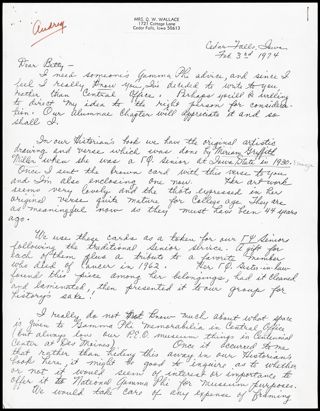 Audrey
MRS. G. W. WALLACE
1727 Cottage Lane
Cedar Falls, Iowa 50613
Cedar Falls, Iowa
Feb 3rd 1974
Dear Betty -
I need someone's Gamma Phi advice, and since I
feel I really know you I've decided to write to you
rather than Central Office. Perhaps you'll be willing
to direct my idea to the right person for considera-
tion. Our Alumnae Chapter will appreciate it and so
shall I.
In our Historian's book we have the original artistic
drawing and verse which was done by Miriam Griffith
Miller when she was a senior at Iowa State in 1930.
Once I sent the brown card with this verse to you
and I'm also enclosing one now. Her art work
seems very lovely and the thots expressed in her
original verse quite mature for College age. They are
as meaningful now as they must have been 44 years
ago.
We use these cards as a token for our Seniors
following the traditional Seniors service. A gift for
each of them plus a tribute to a favorite member
who died of cancer in 1962. Her sister-in-law
found this piece among her belongings, had it cleaned
and laminated, then presented it to our group for
history's sake!
I really do not know much about what space
is given to Gamma Phi memorabilia in Central Office
(but always love the P.E.O. museum things in Centennial
Center at Des Moines). Once it occurred to me
that rather than hiding this away in our Historian's
book here, it might be good to inquire as to whether
or not it would seem of interest or importance to
offer it to National Gamma Phi for Museum purposes.
We would take care of any expense of framing